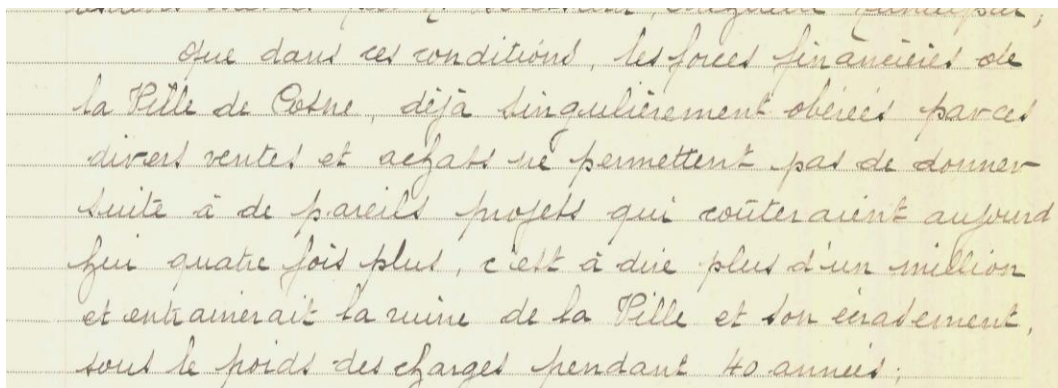 Que dans ces conditions, les forces financières de
la Ville de Cosne, déjà singulièrement obérées par ces
divers ventes et achats ne permettent pas de donner
suite à de pareils projets qui coûteraient aujourd
hui quatre fois plus, c'est à dire plus d'un million
et entrainerait la ruine de la Ville et son écrasement,
sous le poids des charges pendant 40 années;